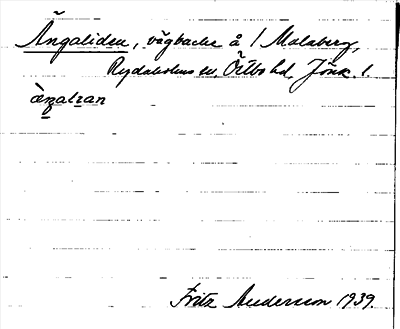 Ängaliden, vägbacke å 1 Malaberg,
Rydaholms sn, Östbo hd, Jönk. l.
Fritz Andersson 1939.